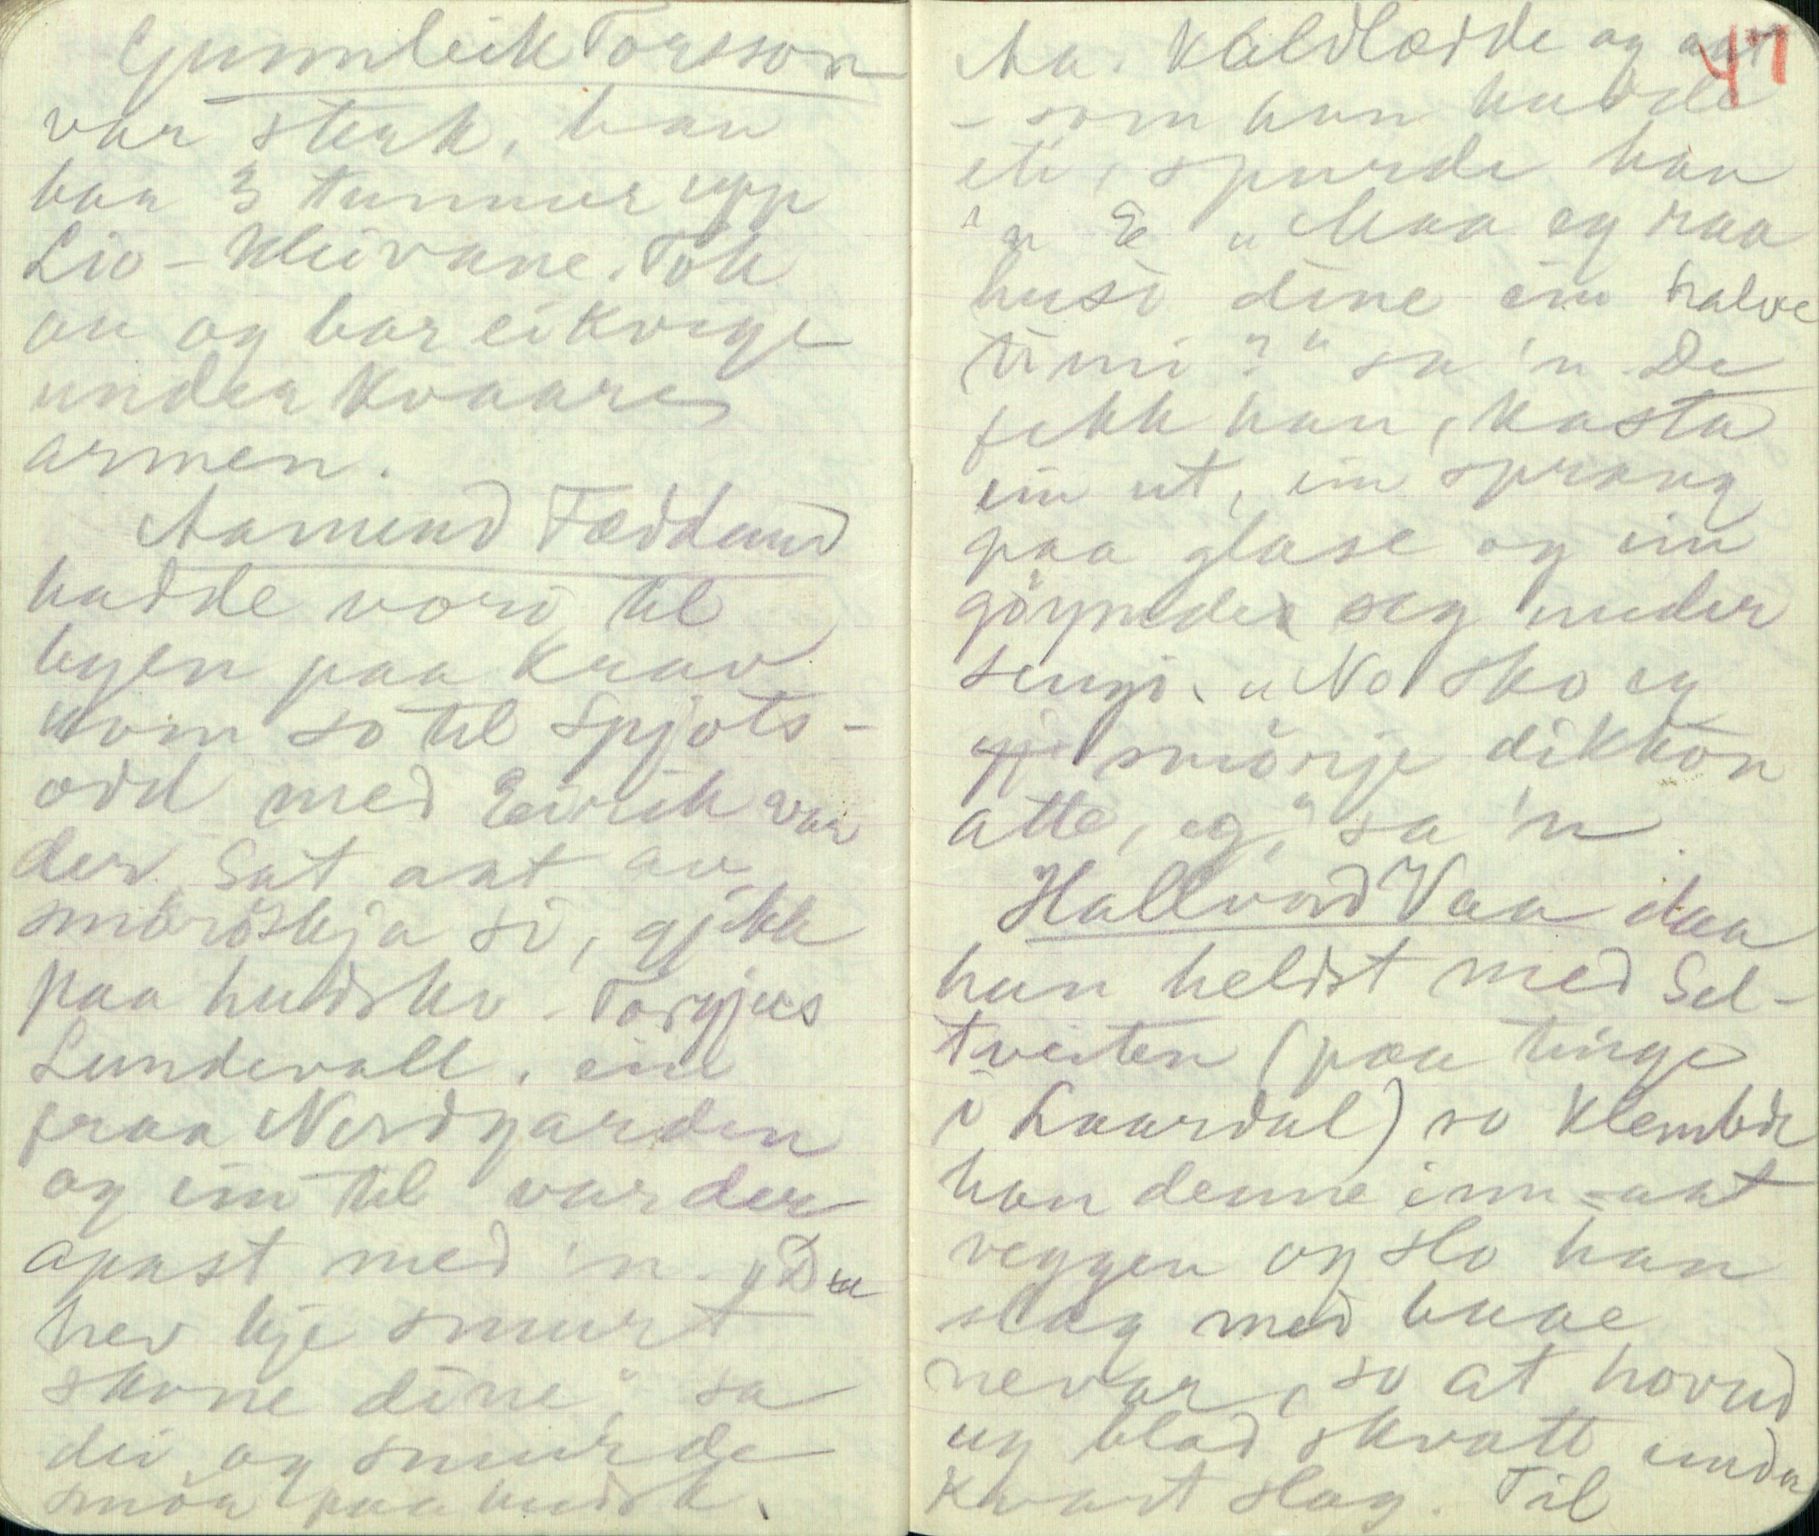 Gunnleik Torsson
var sterk, han
baa 3 tunnur upp
Lio-Kleivane. Tok
on og bar ei kvige
under kvaare
armen.
Aamund Fæddand
hadde vori til
byen paa krav
kom so til Spjots-
odd med Eirik var
der. Sat aat av
smöröskja si, gjekk
paa hudsko. Torgjus
Lundevall, ein
fraa Nordgarden
og ein til var der
apast med 'n. „Du
hev kje smurt
skone dine", sa
dei og smurde
smör paa hudsk.
47
Aa. kaldlædde og aat
- som han hadde
eti, spurde han
'n E „Maa eg raa
husi dine ein halve
timi?" sa 'n De
fekk han, kasta
ein ut, ein sprang
paa glase og ein
göymde seg under
sengi. „No sko eg
smörje dikkon
atte, eg," sa 'n.
Hallvord Vaa daa
han heldt med Sel-
tveiten (paa tinge
i Laardal) so klembde
han denne inn-aat
veggen og slo han
slag med baae
nevar, so at hovud
og blod skvatt under
kvart slag. Til